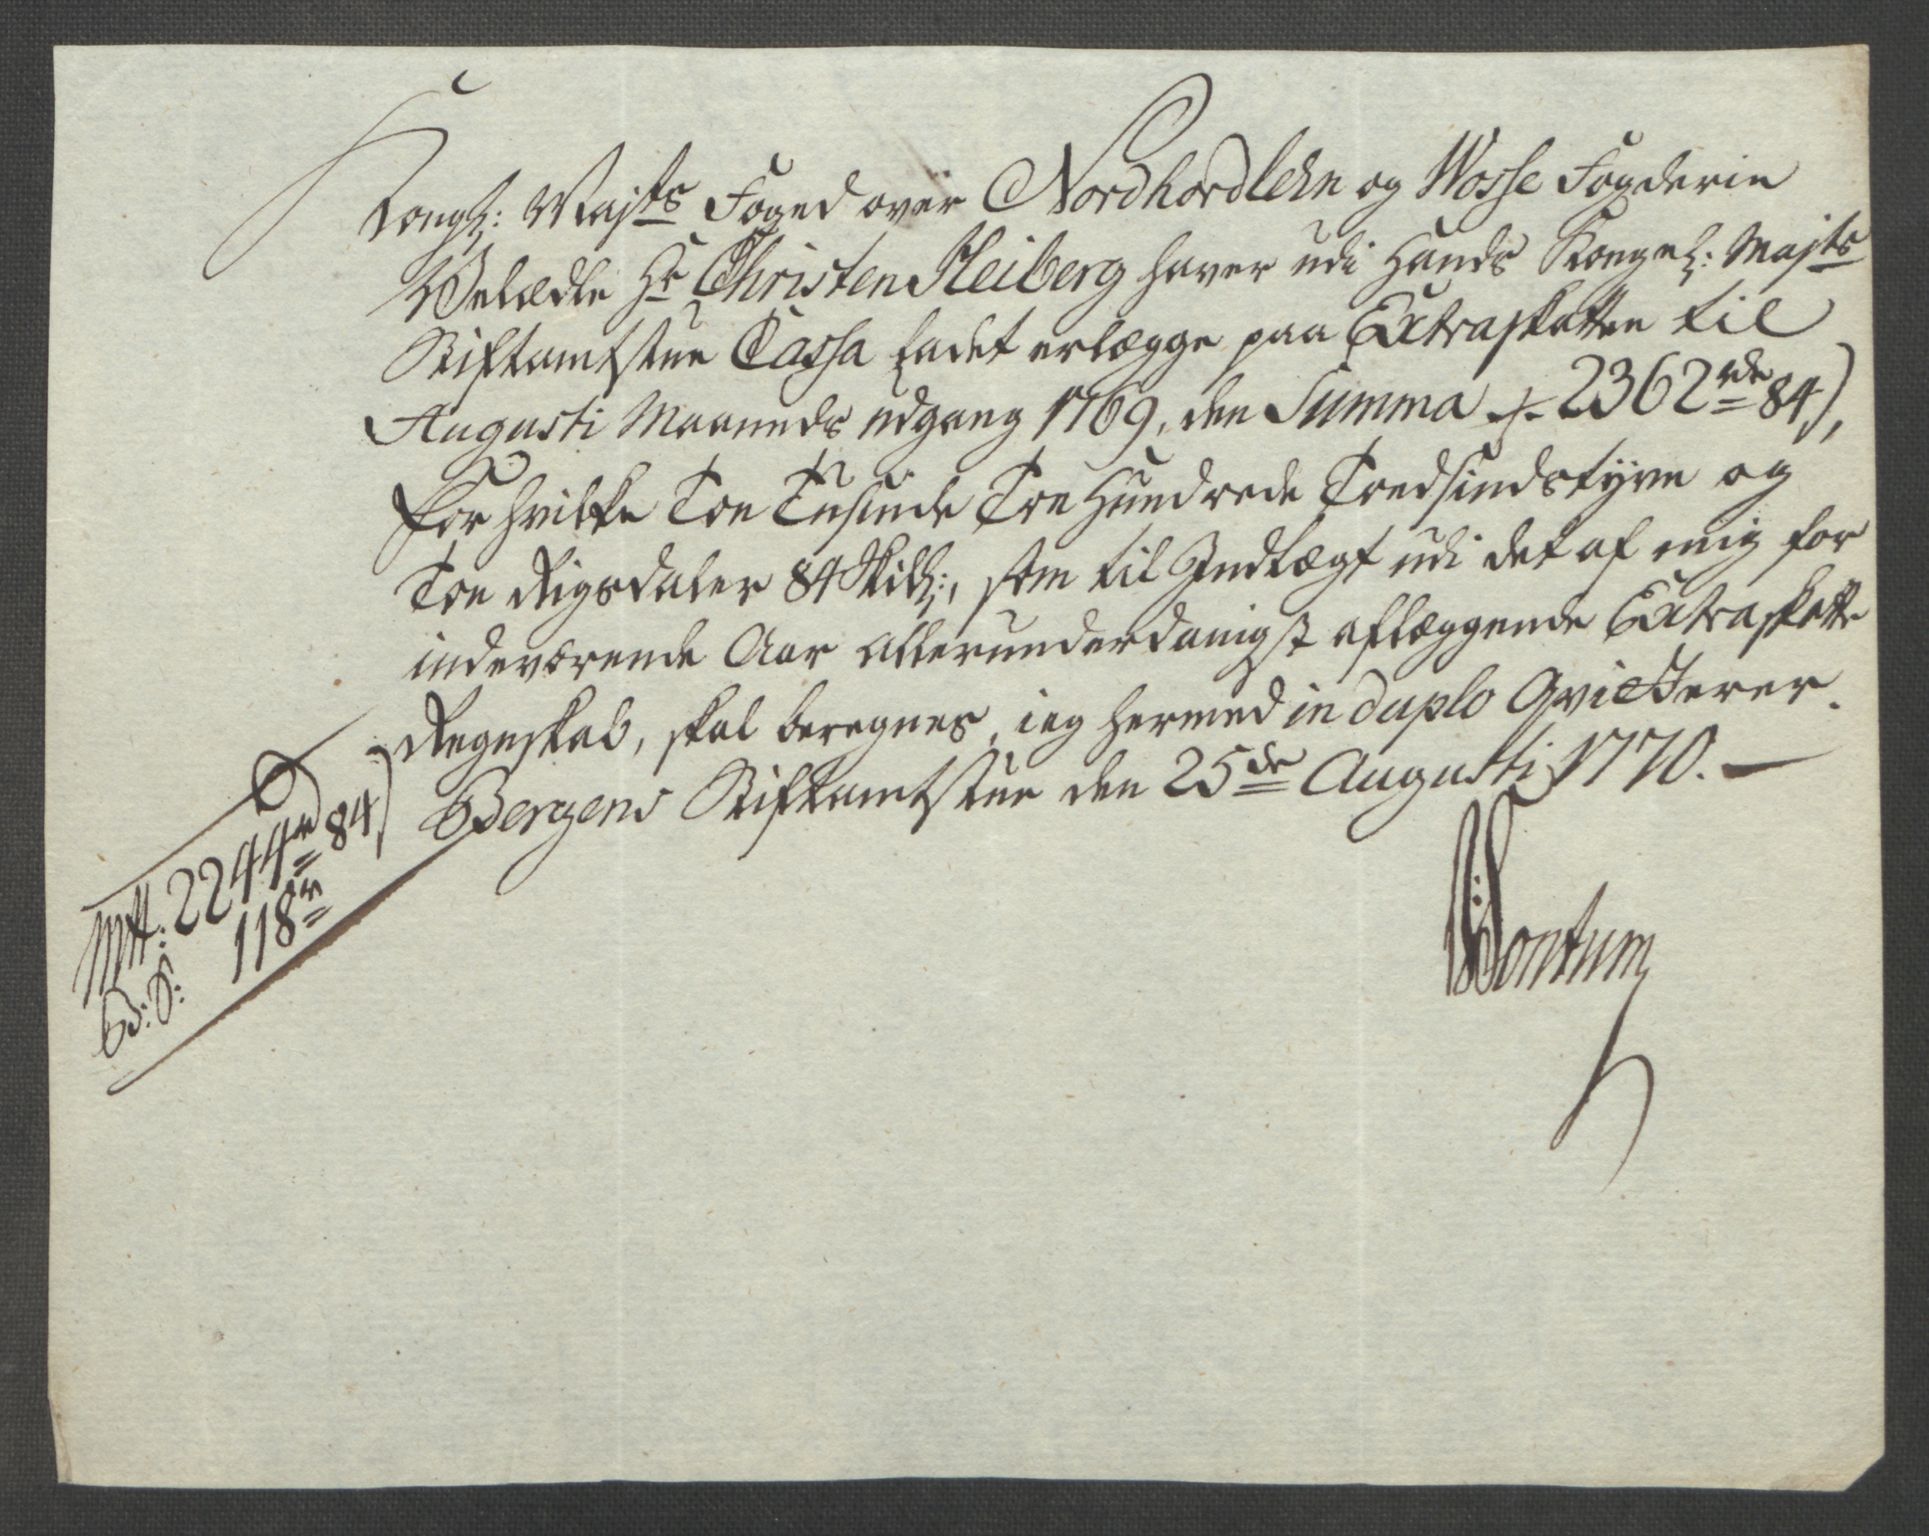 Kongl: Mayts Foged over Nordhordlehn og Wosse Fogderie
Velædle Hr Christen Heiberg haver udi Hands Kongel: Majts
Stiftamtstue Cassa ladet erlægge paa Extraskatten til
Augusti Maaneds udgang 1769, den Summa 2362 rdr 84 s,
for hvilke Toe Tusinde Tre Hundrede Tredsindstyve og
Toe Rigsdaler 84 Skill:, som til Indtægt udi det af mig for
indeværende Aar allerunderdanigst aflæggende Extraskatte
Regnskab, skal beregnes, ieg hermed in duplo Qvitterer.
Bergens Stiftamtstue den 25de Augusti 1770. —
Wontum
Mtt: 2244 r 84 s
B: S: 118 r